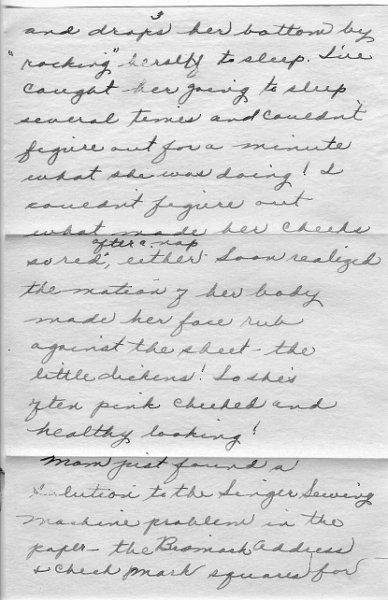 3
and drops her bottom by
"rocking" herself to sleep. I've
caught her going to sleep
several times and couldn't
figure out for a minute
what she was doing! I
couldn't figure out
what made her cheeks
after a nap
so red, either. Soon realized
the motion of her body
made her face rub
against the sheet - the
little dickens! So she's
often pink cheeked and
healthy looking!
Mom just found a
solution to the Singer Sewing
machine problem in the
paper - the Address
& check mark squares for